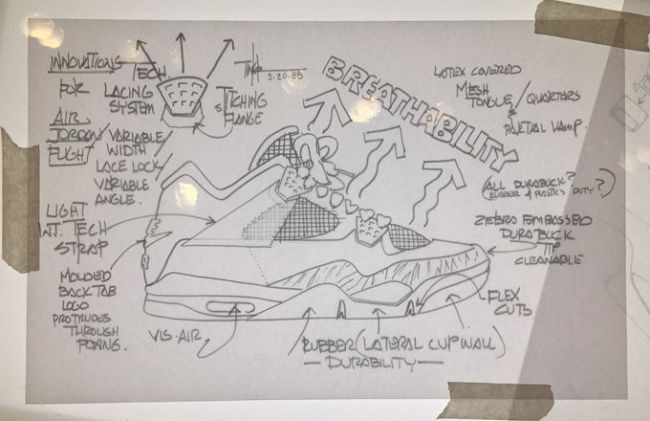 INNOVATIONS
FOR
AIR
JORDAN/
FLIGHT
TECH
LACING
SYSTEM
VARIABLE
WIDTH
LACE LOCK/
VARIABLE
ANGLE.
3.20.88
STITCHING
FLANGE
BREATHABILITY
LATEX COVERED
MESH
TONGUE/QUARTERS
&
PARTIAL VAMP.
ALL DURABUCK?
(RUBBER & PLASTICS DUTY?)
ZEBRA EMBOSSED
DURABUCK
TIP
CLEANABLE
FLEX
CUTS
LIGHT
WT. TECH
STRAP
MOLDED
BACK TAB
LOGO
PROTRUDES
THROUGH
FOXING.
VIS-AIR
RUBBER (LATERAL CUPWALL)
— DURABILITY —